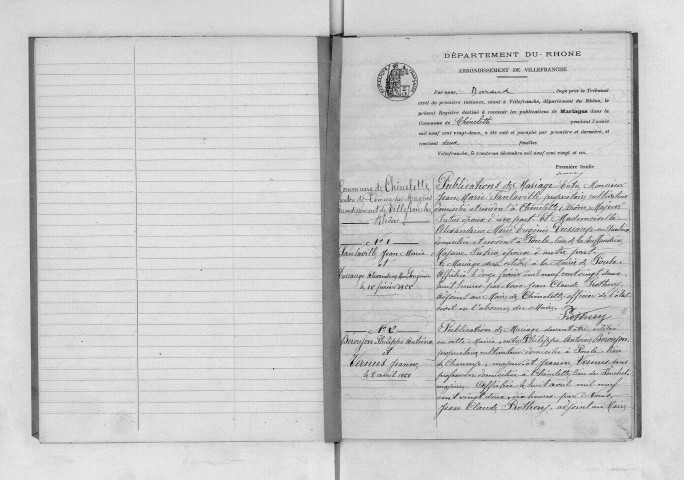 DÉPARTEMENT DU RHÔNE
ARRONDISSEMENT DE VILLEFRANCHE
Par nous, Durand, Juge près le Tribunal
civil de première instance, séant à Villefranche, département du Rhône, le
présent Registre destiné à recevoir les publications de Mariages dans la
Commune de Chénelette pendant l'année
mil neuf cent vingt-deux, a été coté et paraphé par première et dernière, et
contient deux feuilles
Villefranche, le trente-un décembre mil neuf cent vingt et un.
Première feuille
Commune de Chénelette
Arrondissement de Villefranche
Rhône
N° 1
Sanlaville Jean Marie
et
Dussauge Alexandrine Marie Eugénie
le 10 février 1922
Publications de Mariage Entre Monsieur
Jean Marie Sanlaville, propriétaire cultivateur
domicilié et résidant à Chénelette Rhône Majeur
futur époux d'une part. Et Mademoiselle
Alexandrine Marie Eugénie Dussauge
domiciliée et résidant à Poule
Majeure future épouse d'autre part.
le Mariage devra célébré à la Mairie de Poule.
Affichée le février mil neuf cent vingt deux
huit heures par Nous Jean Claude Prothery
adjoint au Maire de Chénelette officier de l'état
civil en l'absence du Maire.
Prothery
N° 2
Berujon Philippe Antoine
et
Vernus Jeanne
le 8 avril 1922
Publication de Mariage devant être célébré
en cette Mairie, entre Philippe Antoine Berujon,
propriétaire cultivateur domicilié à Poule lieu
de majeur, et Jeanne Vernus sans
profession domiciliée à Chénelette lieu de
majeure. Affichée le huit avril mil neuf
cent vingt deux, heures par nous
Jean Claude Prothery, adjoint au Maire